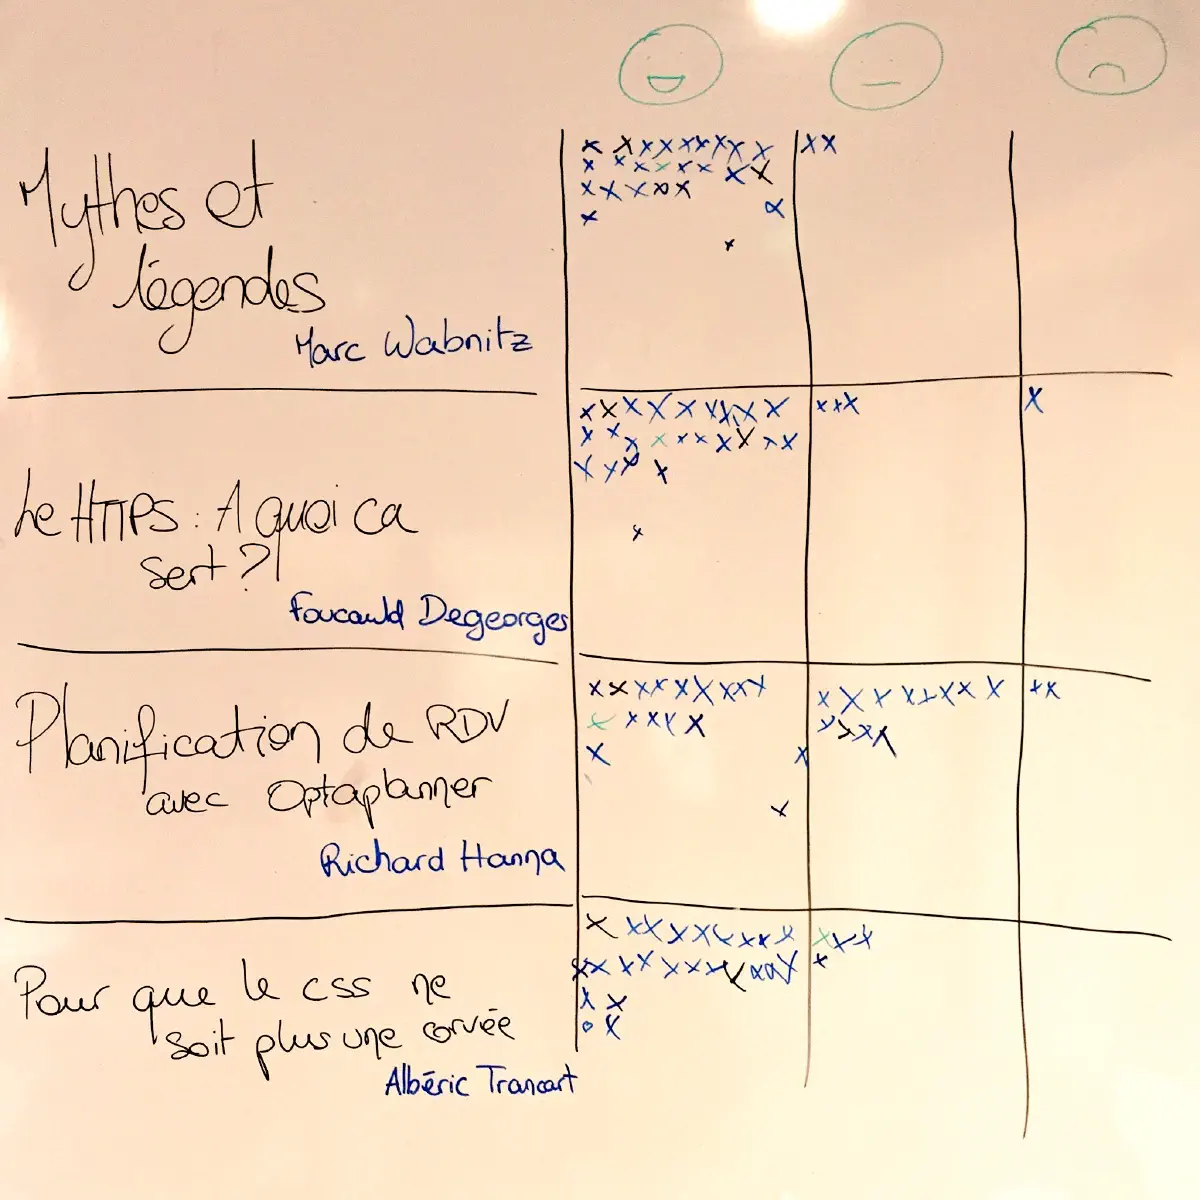 Mythes et
légendes
Marc Wabnitz
Le HTTPS : A quoi ca
sert ?
Foucauld Degeorges
Planification de RDV
avec Optaplanner
Richard Hanna
Pour que le css ne
soit plus une corvée
Albéric Trancart